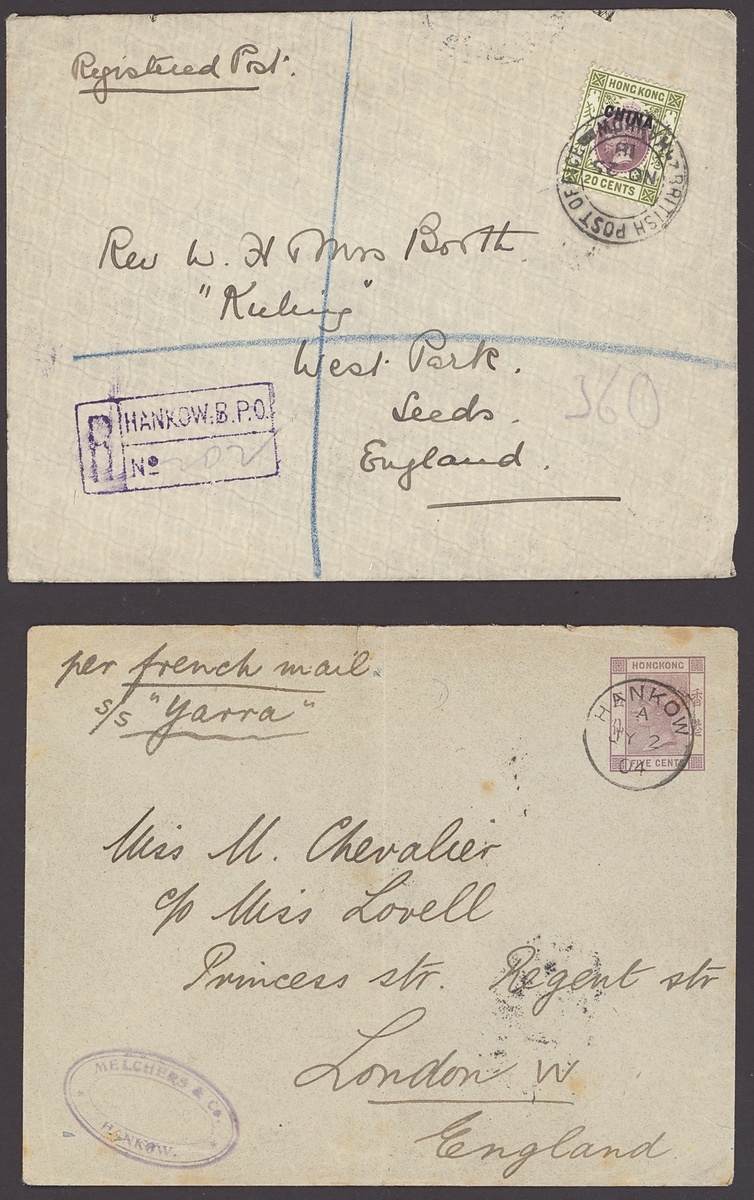 Registered Post.
HONG KONG
CHINA
20 CENTS
BRITISH POST OFFICE
HANKOW
Rev W. H Mrs Booth
"Kuling"
West Park.
Leeds.
England.
360
R HANKOW.B.P.O.
Nº 202
per french mail
s/s "Yarra"
HONGKONG
香港
FIVE CENTS
HANKOW
A
MY 2
04
Miss M. Chevalier
c/o Miss Lovell
Princess str. Regent str
London W
England.
MELCHERS & Co.
HANKOW.